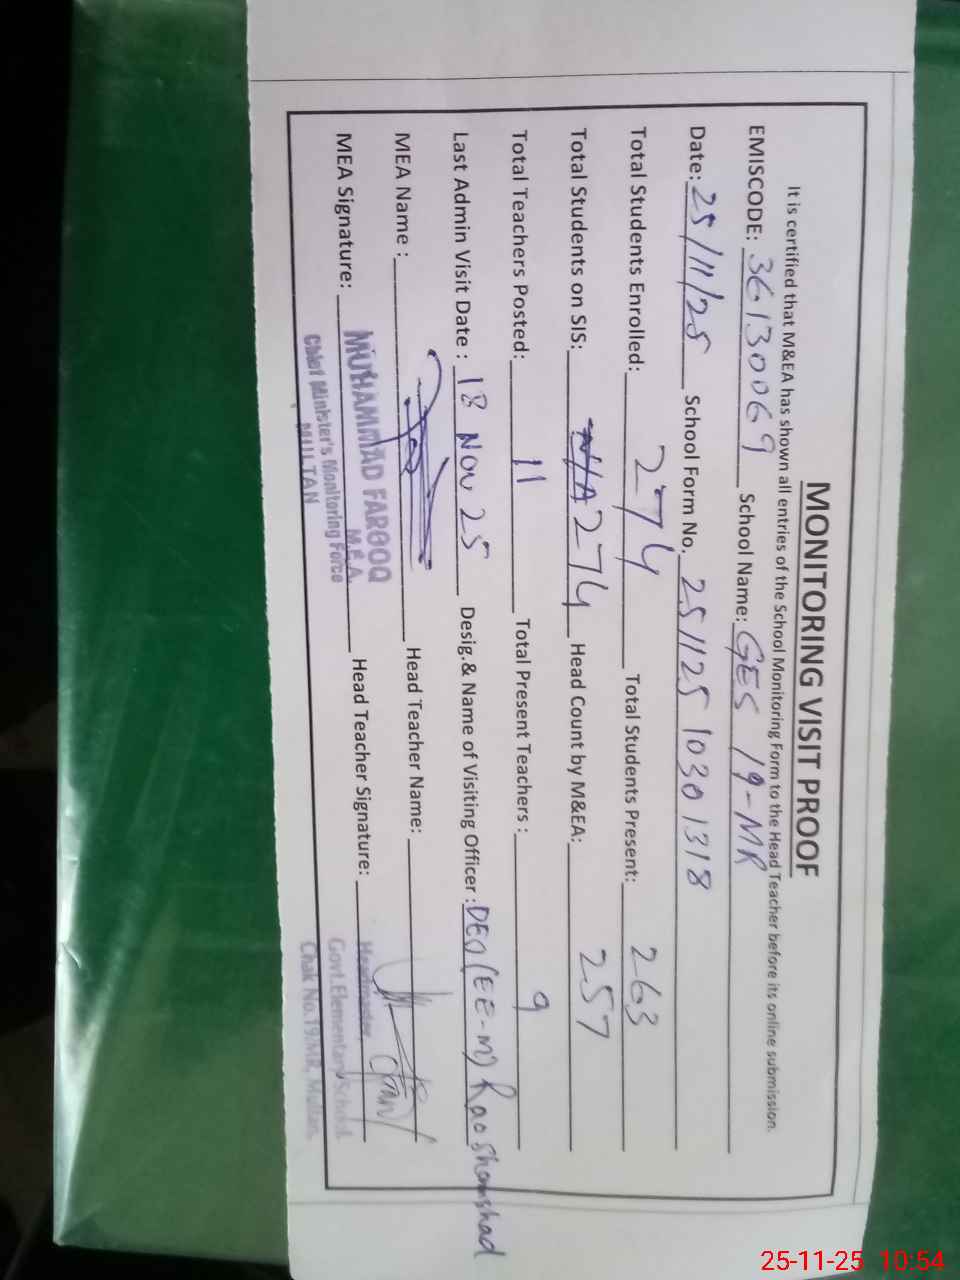 MONITORING VISIT PROOF
It is certified that M&EA has shown all entries of the School Monitoring Form to the Head Teacher before its online submission.
EMISCODE: 36130069 School Name: GES 19-MR
Date: 25/11/25 School Form No. 25112510301318
Total Students Enrolled: 274 Total Students Present: 263
Total Students on SIS: N/A 274 Head Count by M&EA: 257
Total Teachers Posted: 11 Total Present Teachers : 9
Last Admin Visit Date : 18 Nov 25 Desig.& Name of Visiting Officer : DEO (EE-M) Rao Shamshad
MEA Name : Head Teacher Name:
MEA Signature: Head Teacher Signature:
MUHAMMAD FAROOQ
M.E.A.
Chief Minister's Monitoring Force
MULTAN
Headmaster,
Govt.Elementary School
Chak No.19/MR, Multan.
25-11-25 10:54